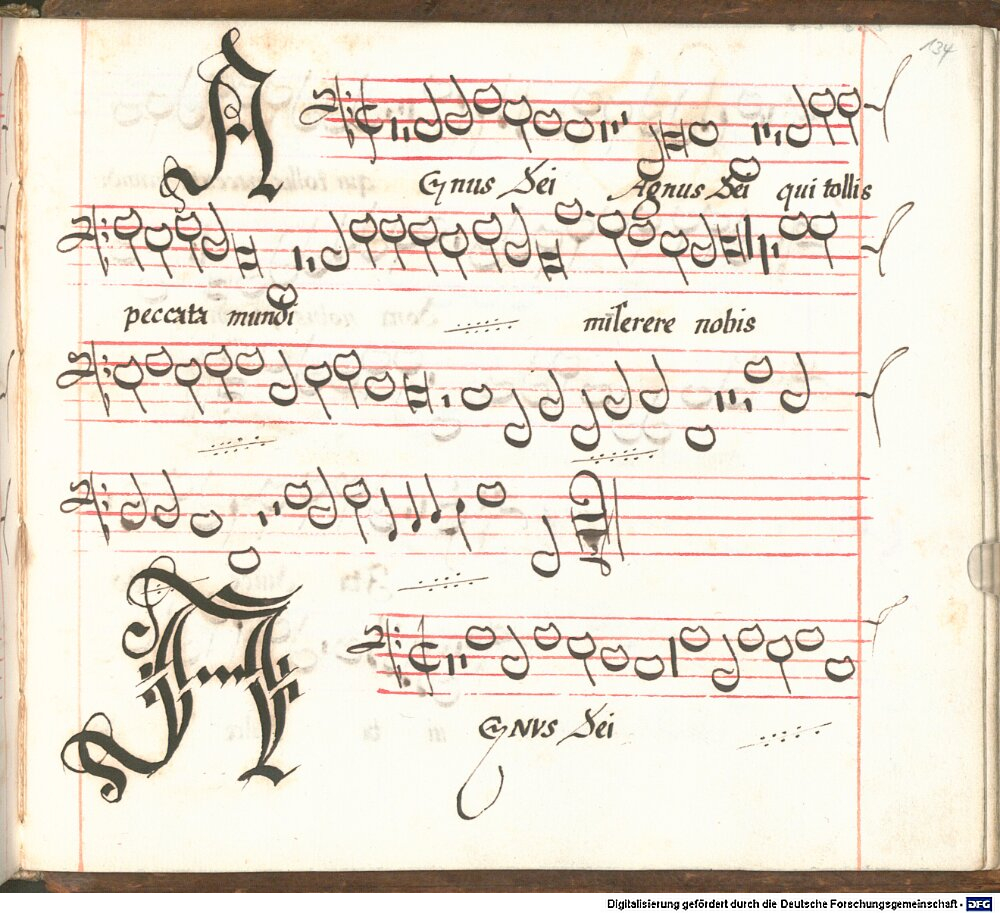 134
A Gnus Dei Agnus Dei qui tollis
peccata mundi miserere nobis
A GNVS Dei
Digitalisierung gefördert durch die Deutsche Forschungsgemeinschaft - DFG